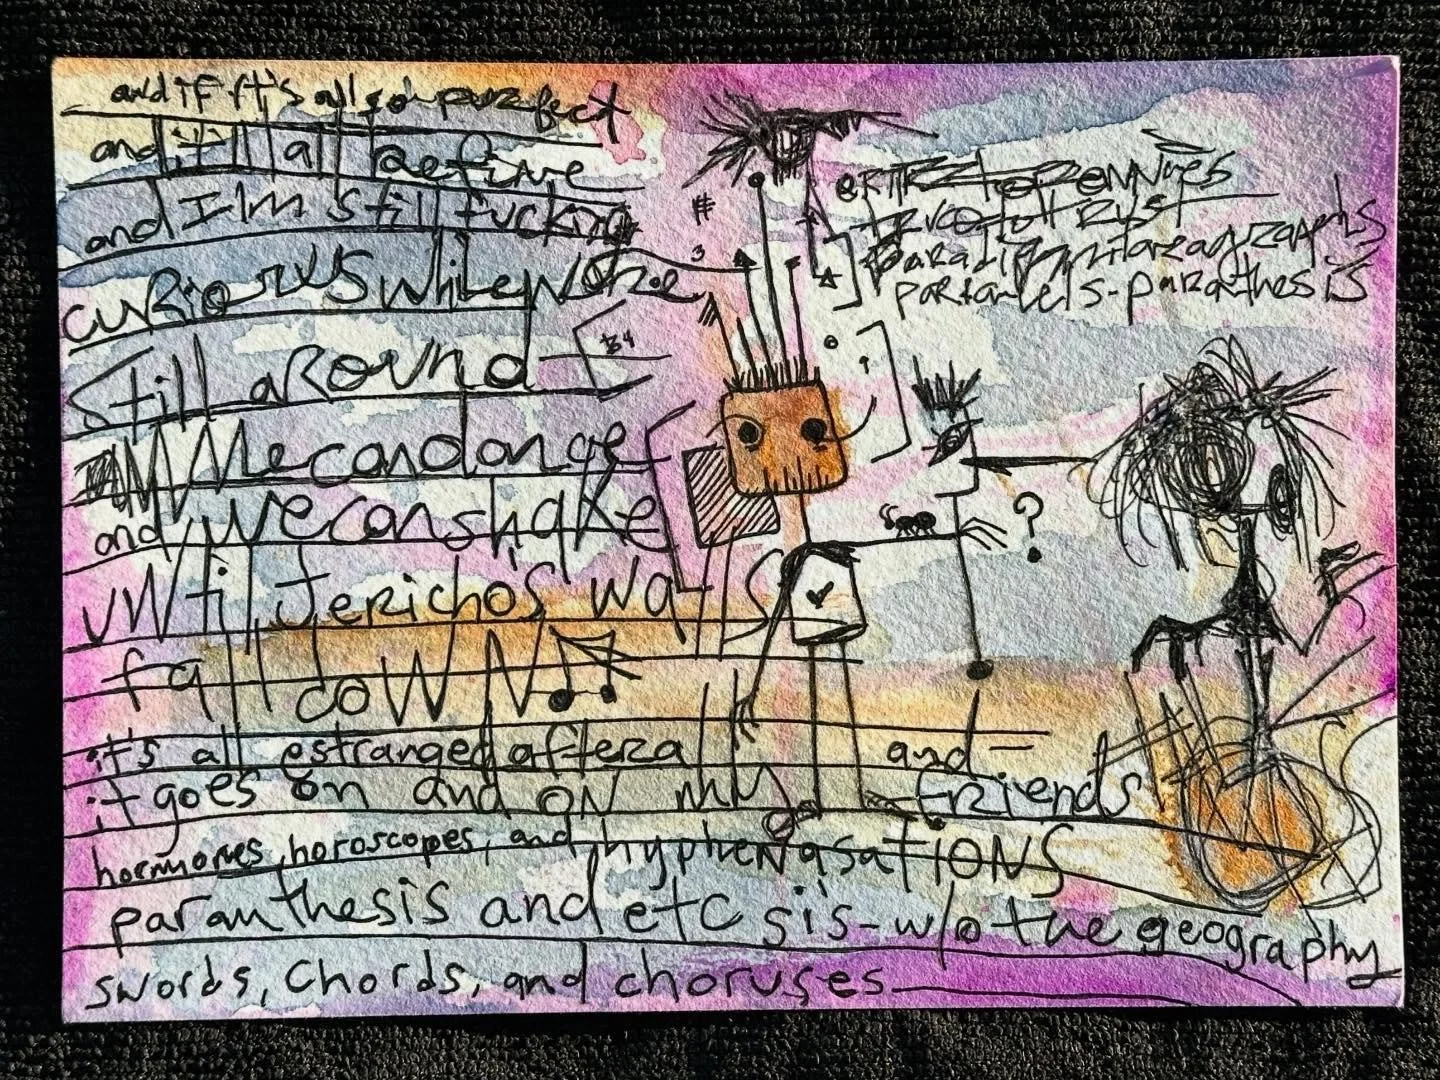 and if it's all so purzfect
and it'll all be fine
and I'm still fucking
curious while we're
still around
We can dance
and we can shake
until Jericho's wa-
fall down
#
B4
?
it's all estranged after a and =
it goes on and on my friends
hormones, horoscopes, and hyphenasations
paranthesis and etc sis-w/o the geography
swords, chords, and choruses
paranthesis